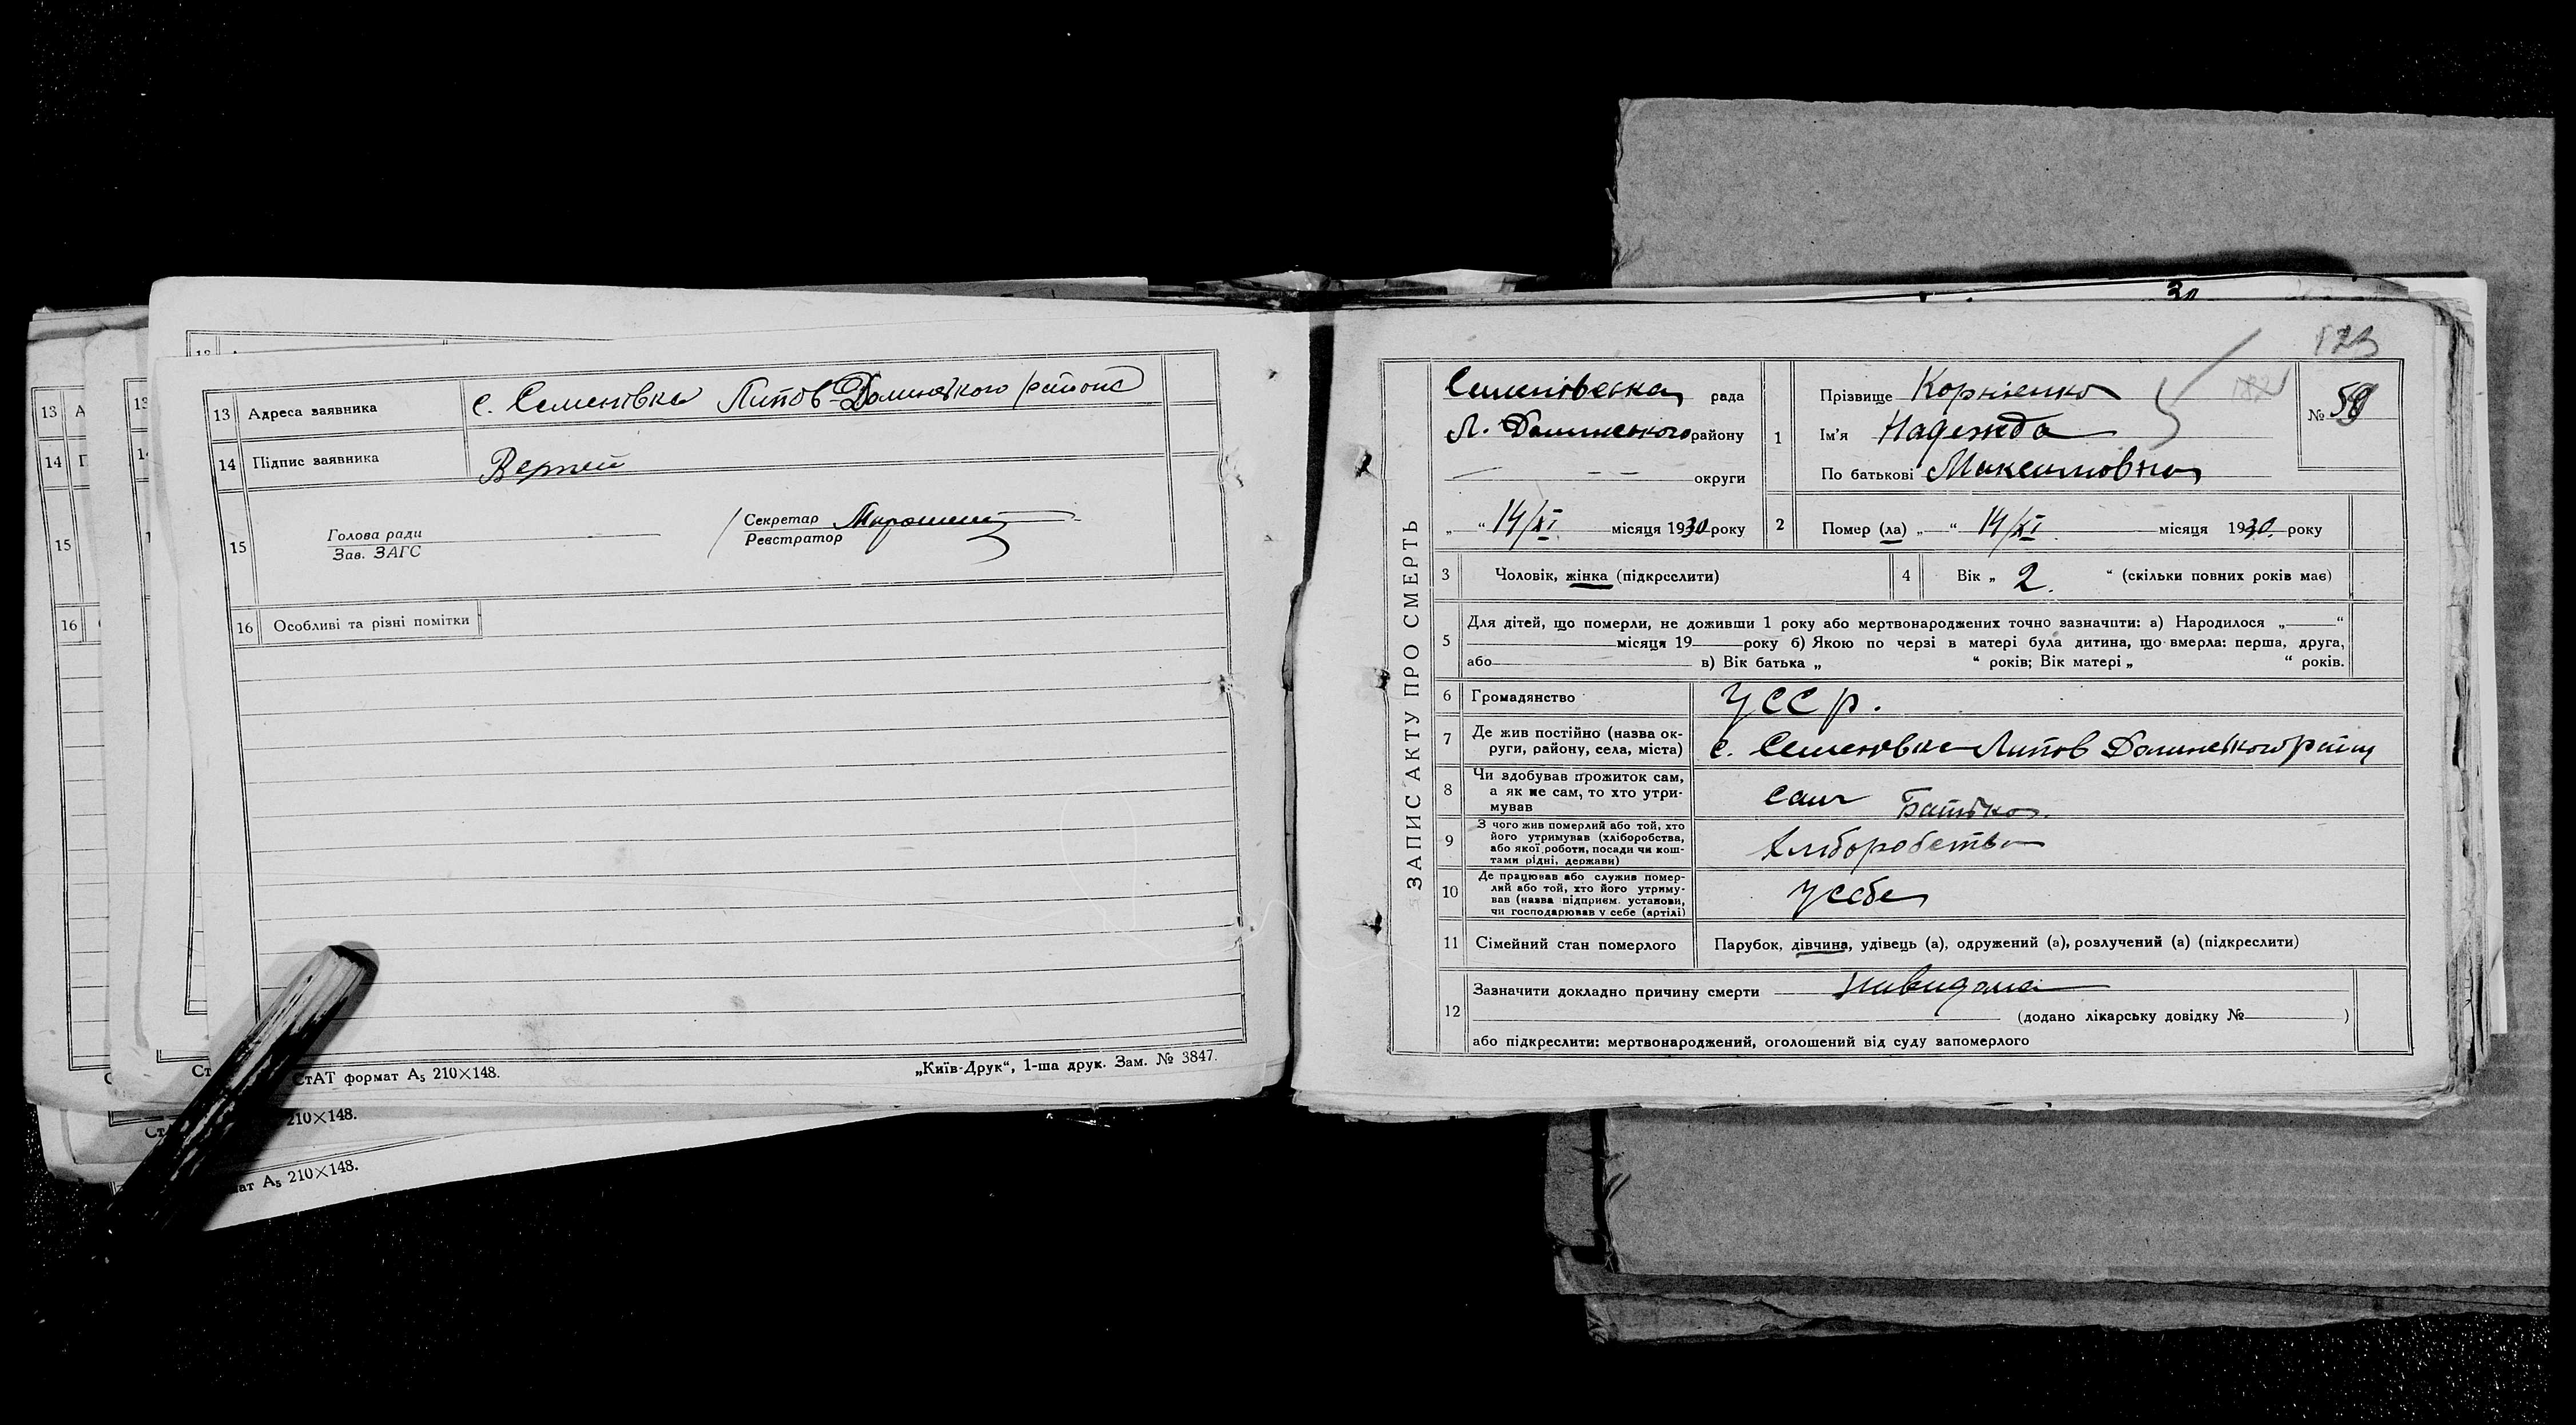 13 Адреса заявника с. Семенівка Липов-Долинського района
14 Підпис заявника
15 Голова ради
Зав. ЗАГС
Секретар
Реєстратор
16 Особливі та різні помітки
СтАТ формат А₅ 210×148.
„Київ-Друк“, 1-ша друк. Зам. № 3847.
210×148.
А₅ 210×148.
13
14
15
16
30
ЗАПИС АКТУ ПРО СМЕРТЬ
Семенівська рада
Л. Долинського району
округи
„ “ 14/XI місяця 1930 року
1 Прізвище Корнієнко
Ім'я Надежда
По батькові Максимовна
№ 59
2 Помер (ла) „ “ 14/XI місяця 1930. року
3 Чоловік, жінка (підкреслити)
4 Вік „ 2. “ (скільки повних років має)
5 Для дітей, що померли, не доживши 1 року або мертвонароджених точно зазначити: а) Народилося „ “
місяця 19 року б) Якою по черзі в матері була дитина, що вмерла: перша, друга,
або в) Вік батька „ “ років; Вік матері „ “ років.
6 Громадянство УССР.
7 Де жив постійно (назва ок-
руги, району, села, міста) с. Семенівка Липов Долинського
8 Чи здобував прожиток сам,
а як не сам, то хто утри-
мував сам Батько.
9 З чого жив померлий або той, хто
його утримував (хліборобства,
або якої роботи, посади чи кош-
тами рідні, держави) Хліборобство
10 Де працював або служив помер-
лий або той, хто його утриму-
вав (назва підприєм. установи,
чи господарював у себе (артілі) У себе
11 Сімейний стан померлого Парубок, дівчина, удівець (а), одружений (а), розлучений (а) (підкреслити)
12 Зазначити докладно причину смерти
(додано лікарську довідку № )
або підкреслити: мертвонароджений, оголошений від суду запомерлого